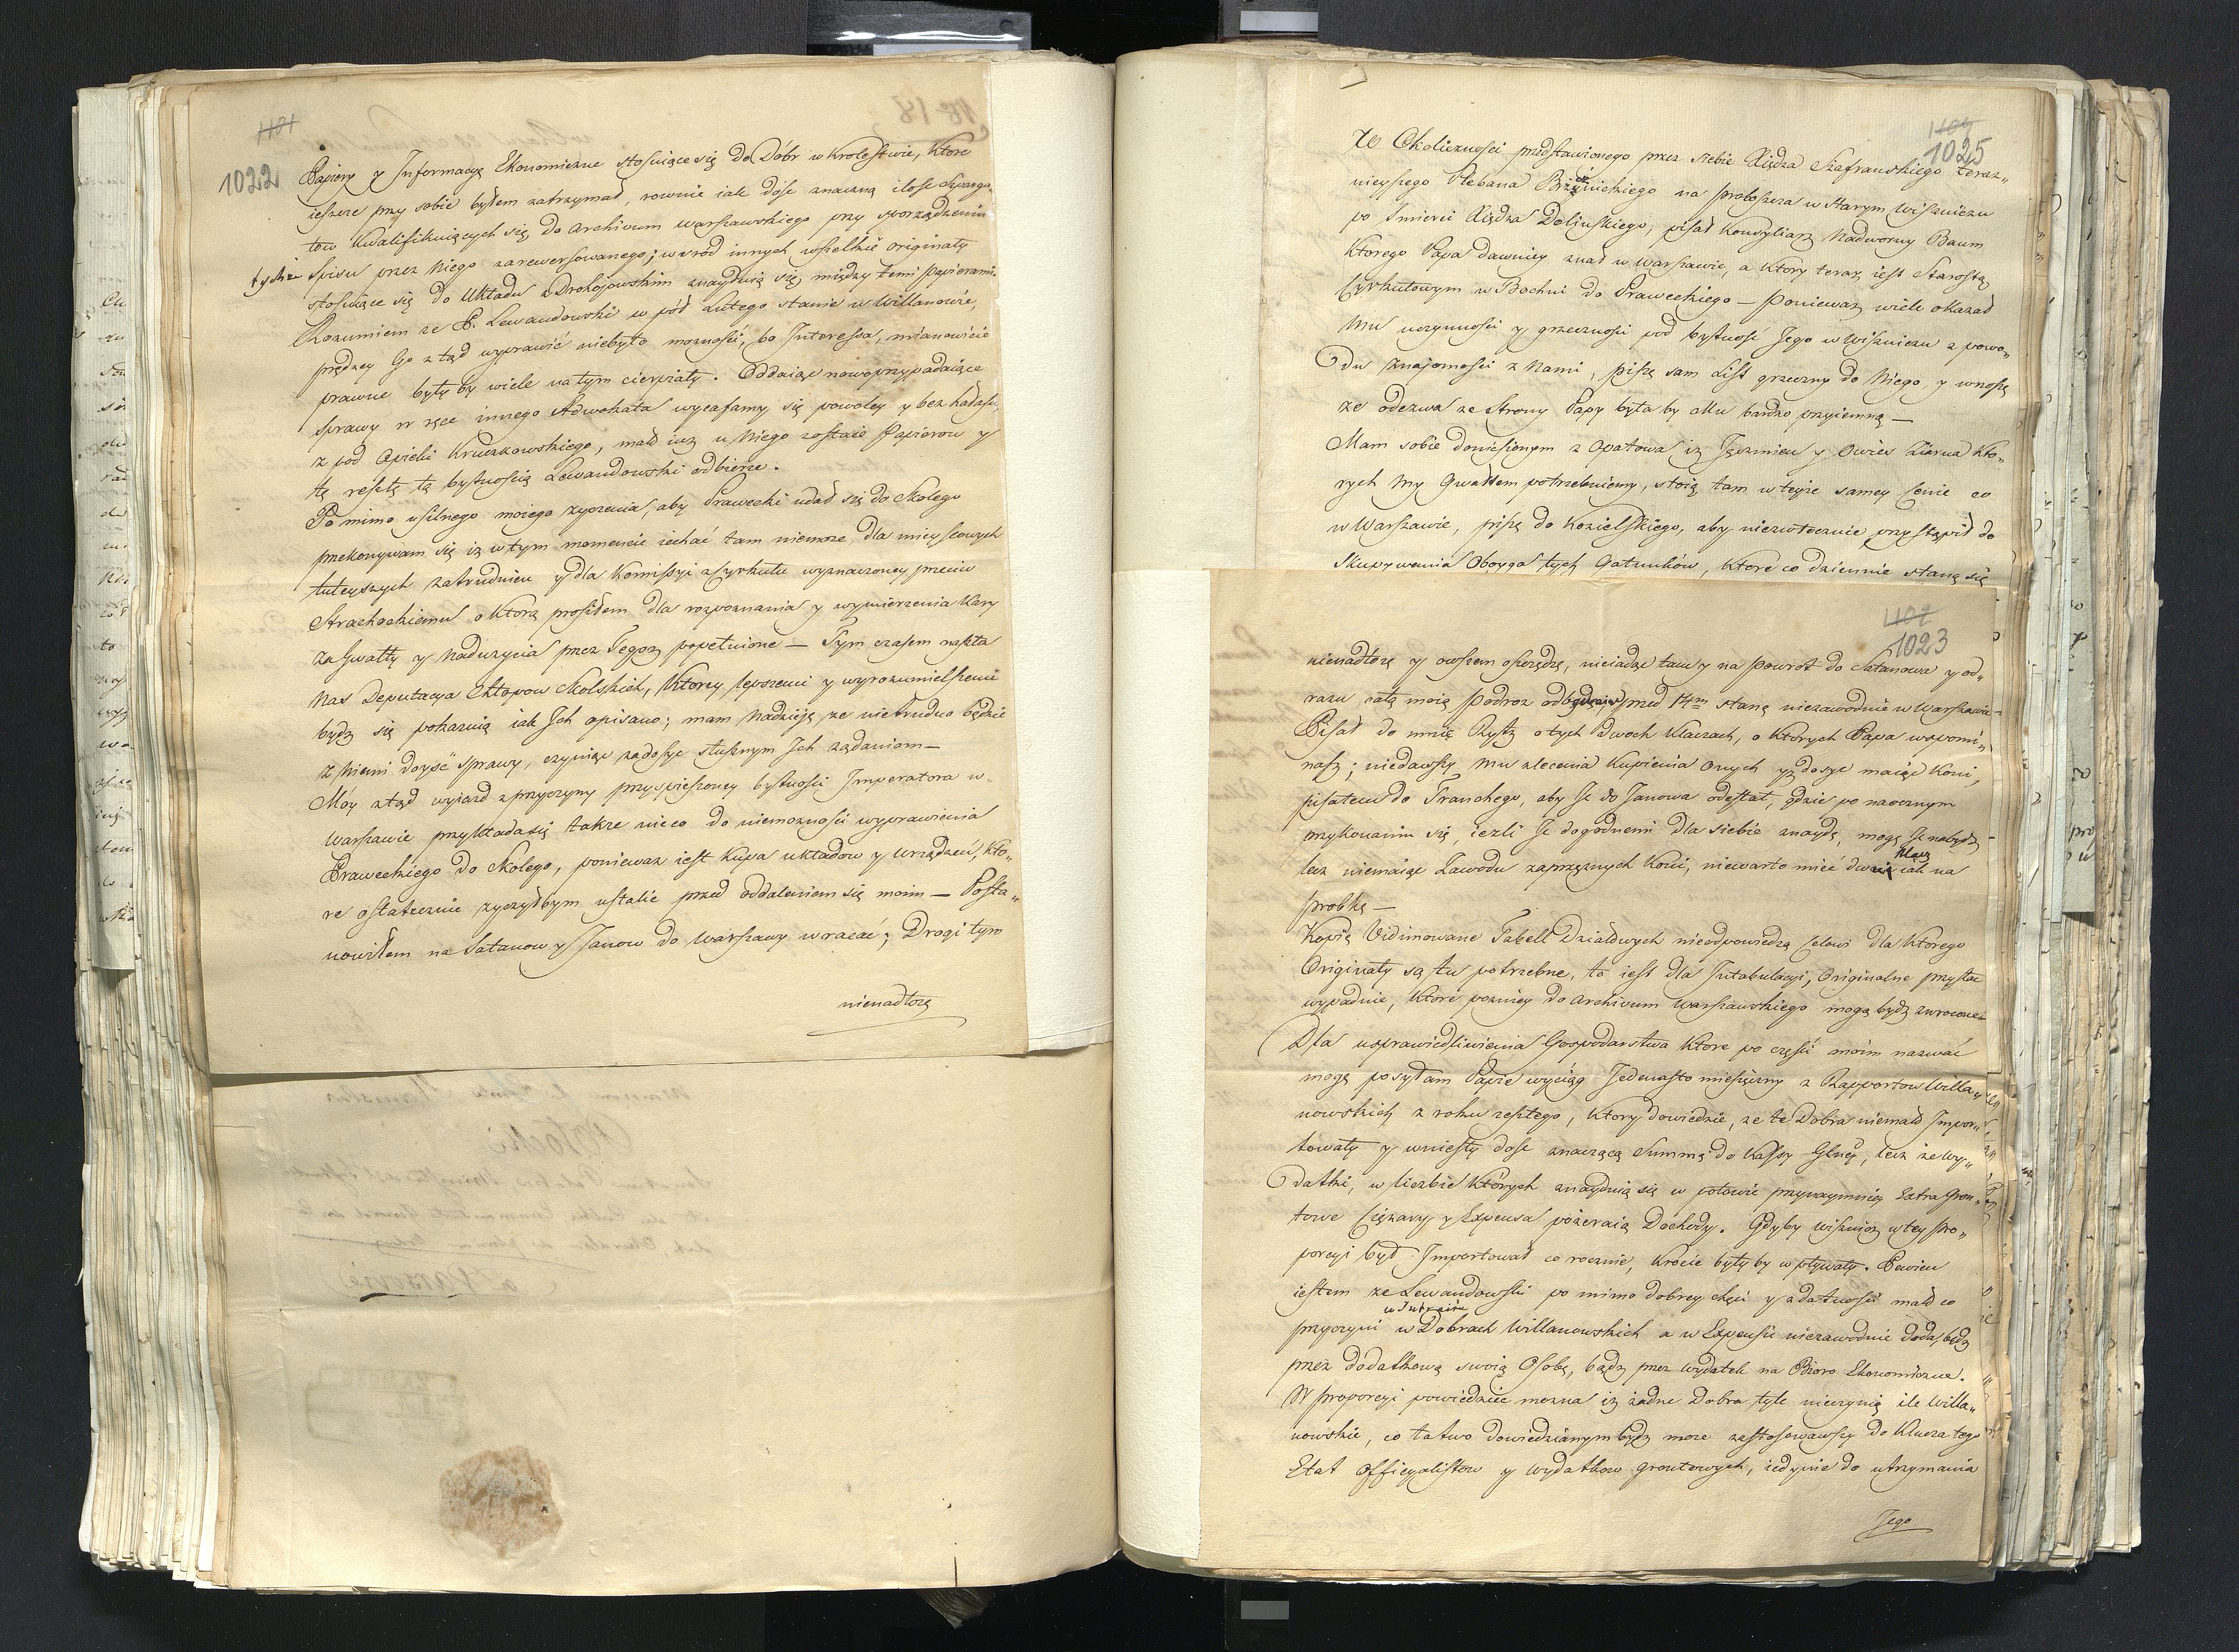 1101
1022
Papiery y Informacye Ekonomiczne stosuiące się do Dobr w Krolestwie, Ktore
ieszcze przy sobie byłem zatrzymał, rownie iak dosc znaczną ilosc
tow kwalifikuiących się do Archivum Warszawskiego przy sporządzeniu
tychże Spisu przez Niego zarewersowanego; wsrod innych wszelkie originały
stosuiące się do Układu z Drohojowskim znayduią się, między temi papierami.
Rozumiem ze P. Lewandowski w pół Lutego stanie w Willanowie,
prędzey Go z tąd wyprawić niebyło mozności, bo Interessa, mianowicie
prawne były by wiele na tym cierpiały. Oddaiąc nowoprzypadaiące
Sprawy w ręce innego Adwokata wycafamy się powoley y bez hałasu
z pod Opieki Kruszkowskiego, mało iuz u Niego zostaie Papierow y
tę resztę tą bytnoscią Lewandowski odbierze.
Po mimo usilnego moiego życzenia, aby Prawecki udał się do Skolego
przekonywam się iz w tym momencie iechać tam niemoze, dla mieyscowych
tuteyszych zatrudnien y dla Komissyi z Cyrkułu wyznaczoney przeciw
Strachockiemu o Ktorą prosiłem dla rozpoznania y wymierzenia Kary
za Gwałty y Naduzycia przez Tegoz popełnione — Tym czasem naszła
Nas Deputacya Chłopow Skolskich, Ktorzy lepszemi y wyrozumielszemi
bydz się pokazuią iak Ich opisano; mam Nadzieję, ze nietrudno będzie
z Niemi doyść sprawy, czyniąc zadosyc słusznym Ich ządaniom —
Móy ztąd wyiazd z przyczyny przyspieszoney bytnosci Imperatora w
Warszawie przykłada się takze nieco do niemozności wyprawienia
Praweckiego do Skolego, poniewaz iest Kupa układow y Urządzeń, kto„
re ostatecznie zyczyłbym ustalic przed oddaleniem się moim — Posta„
nowiłem na Satanow y Janow do Warszawy wracać; Drogi tym
nienadłozę
1104
1025
W Okoliczności przedstawionego przez siebie Xiędza Szafrańskiego teraz„
nieyszego Plebana Brzeznickiego na Proboszcza w Starym Wiśniczu
po Smierci Xiędza Dolińskiego, pisał Konsyliarz Nadworny Baum
Ktorego Papa dawniey znał w Warszawie, a Ktory teraz iest Starostą
Cyrkułowym w Bochni do Praweckiego — Poniewaz wiele okazał
Mu uczynności y grzeczności pod bytność Jego w Wiśniczu z powo„
du Znajomości z Nami, piszę sam List grzeczny do Niego, y wnoszę
ze odezwa ze Strony Papy była by Mu bardzo przyiemną —
Mam sobie doniesionym z Opatowa iz Jęczmien y Owies Ziarna Kto„
rych My Gwałtem potrzebuiemy, stoią tam w teyze samey Cenie co
w Warszawie, piszę do Kozielskiego, aby niezwłocznie przystąpił do
Skupywania Oboyga tych Gatunków, Ktore co dziennie staną się
1102
1023
nienadłozę y owszem oszczędzę, nieiadąc tam y na powrot do Satanowa y od„
razu całą moią Podroz odbędzie przed 14m staną niezawodnie w Warszawie
Pisał do mnie Rystz o tych Dwoch Klaczach, o Ktorych Papa wspomi„
nasz; niedawszy Mu zlecenia Kupienia onych y dosyc maiąc Koni,
pisałem do Franchego, aby Je do Janowa odesłał, gdzie po naocznym
przykonaniu się, iezli Je dogodnemi dla siebie znaydę, mogę Je nabydz
lecz niemaiąc Zawodu zaprzęznych Koni, niewarto mieć dwie Klacz iak na
probkę —
Kopię Vidimowane Tabell Działowych nieodpowiedzą Celowi dla Ktorego
Originały są tu potrzebne, to iest dla Intabulacyi, Originalne przysłac
wypadnie, Ktore pozniey do Archivum Warszawskiego mogą bydz zwrocone
Dla usprawiedliwienia Gospodarstwa Ktore po części moim nazwać
mogę posyłam Papie wyciąg Jedenasto miesięczny z Rapportow Willa„
nowskich z roku zeszłego, Ktory dowiedzie, ze te Dobra niemało Impor„
towały y wniesły dosc znaczącą Summę do Kassy Głney, lecz ze wy„
datki, w liczbie Których znayduią się w połowie przynaymniey Extra Gron„
towe Ciężary y Expensa pożeraią Dochody. Gdyby Wisnicz w tey Pro„
porcyi był Importował co rocznie, Krocie były by wpływały. Pewien
iestem ze Lewandowski po mimo dobrey chęci y zdatności mało co
przyczyni w Intracie w Dobrach Willanowskich a w Expensie niezawodnie doda, bądz
przez dodatkową swoią Osobę, bądz przez Wydatek na Bioro Ekonomiczne.
W proporcyi powiedziec mozna iz zadne Dobra tyle nieczynią ile Willa„
nowskie, co łatwo dowiedzianym bydz moze zastosowawszy do Klucza tego
Etat Officyalistow y Wydatkow grontowych, iedynie do utrzymania
Jego